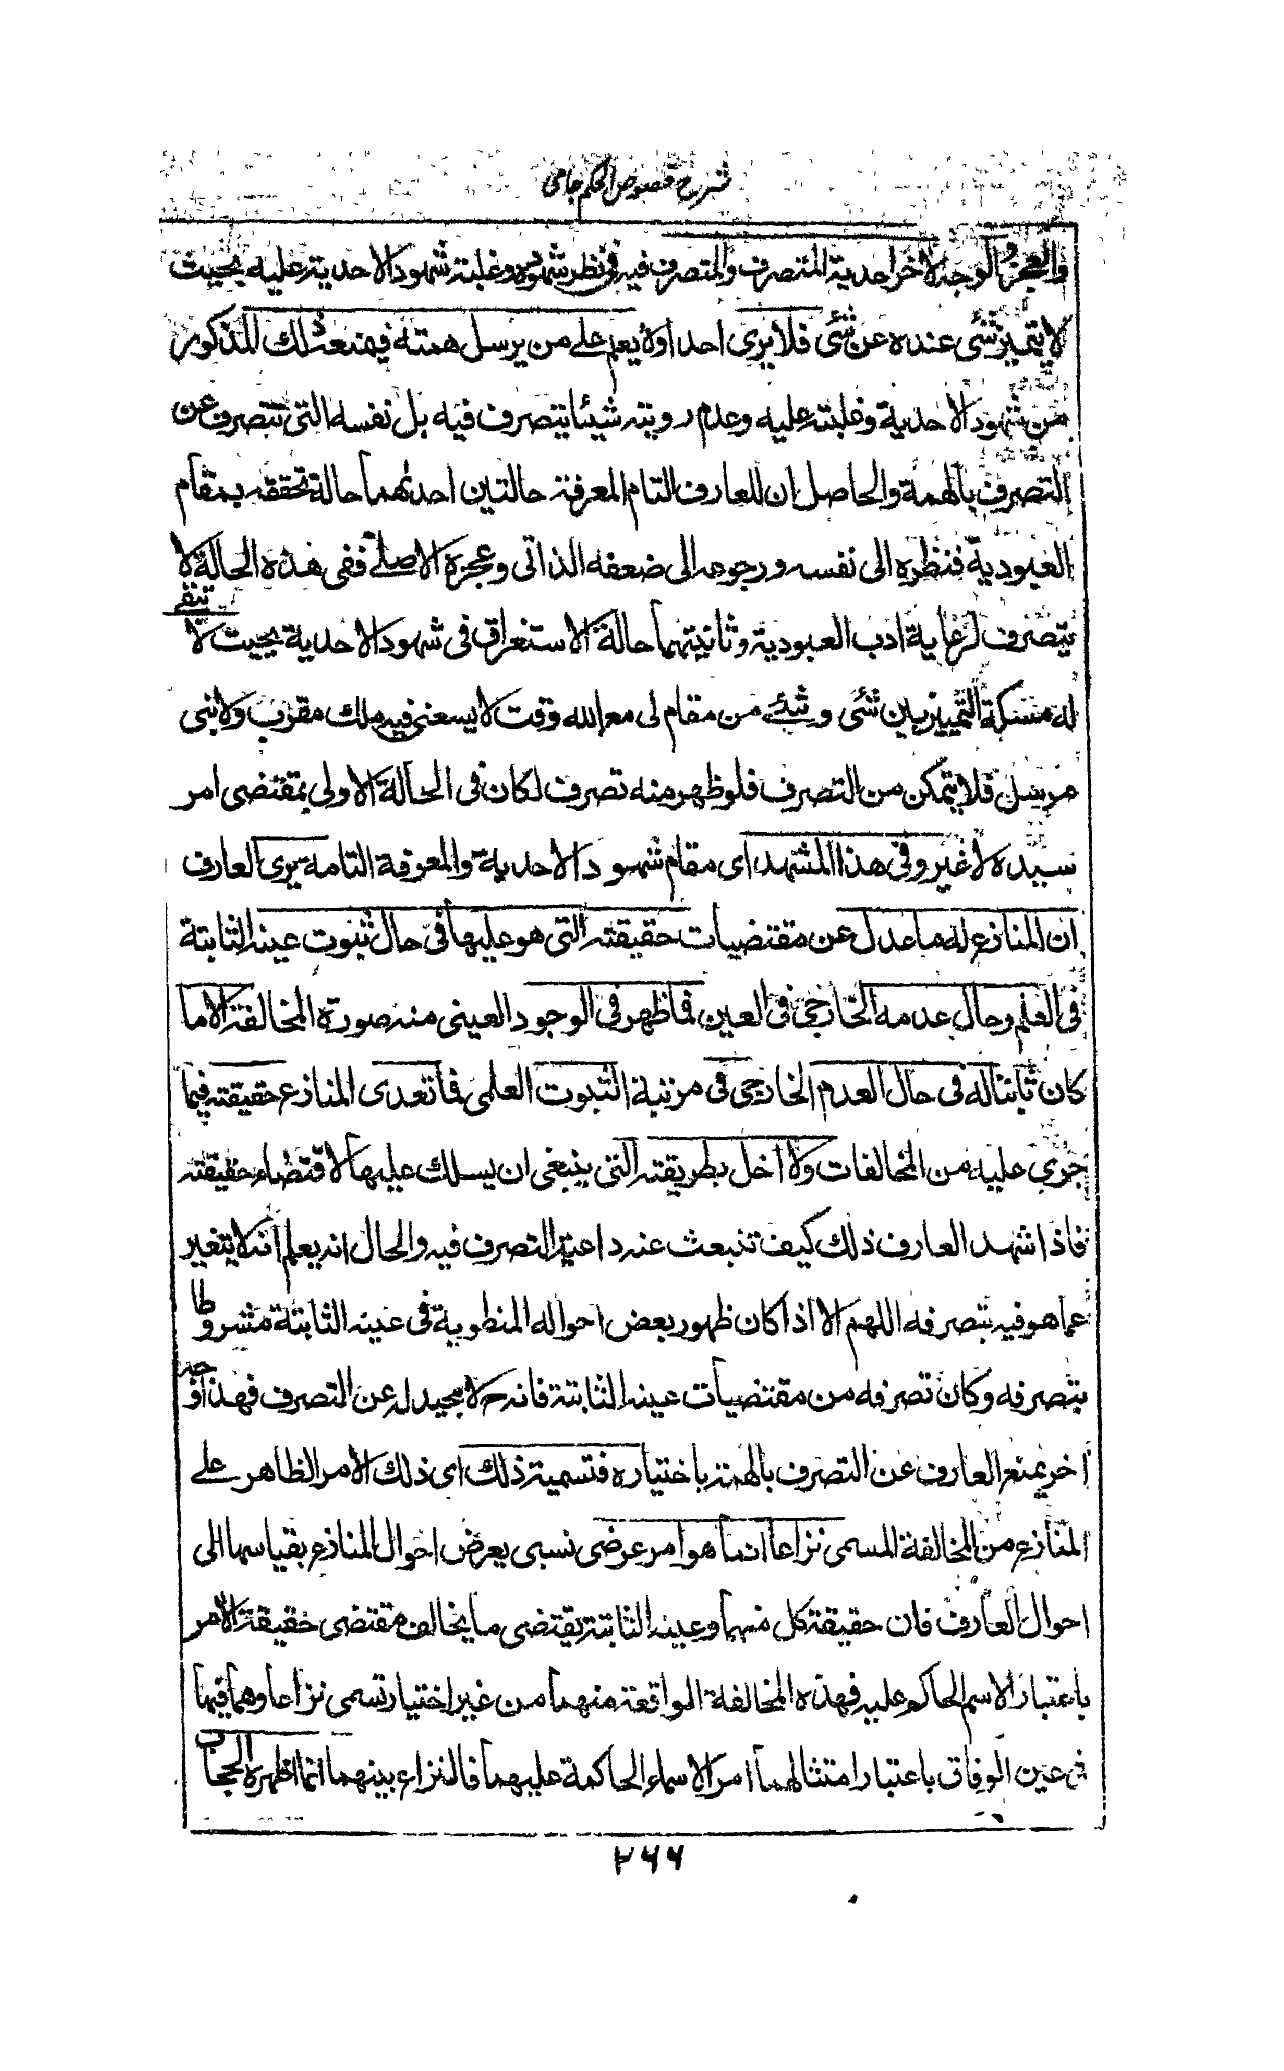 شرح فصوص الحكم جامى
والعجز والوجه الاخر احدية المتصرف والمتصرف فيه فى نظر شهوده وغلبة شهود الاحدية عليه بحيث
لا يتميز شئ عنده عن شئ فلا يرى احدا ولا يعلم على من يرسل همته فيمنعه ذلك المذكور
من شهود الاحدية وغلبته عليه وعدم رويته شيئا يتصرف فيه بل نفسه التى تتصرف عن
التصرف بالهمة والحاصل ان للعارف التام المعرفة حالتين احدٰهما حالة تحققه بمقام
العبودية فنظره الى نفسه ورجوعه الى ضعفه الذاتى وعجزه الاصلے ففى هذه الحالة لا
يتصرف لرعاية ادب العبودية وثانيتهما حالة الاستغراق فى شهود الاحدية بحيث لا تبقى
له مسكة التمييز بين شئ وشئے من مقام لى مع الله وقت لا يسعنى فيه ملك مقرب ولا نبى
مرسل فلا يتمكن من التصرف فلو ظهر منه تصرف لكان فى الحالة الاولى بمقتضى امر
سيده لا غير وفى هذا المشهد اى مقام شهود الاحدية والمعرفة التامة يرى العارف
ان المنازع له ما عدل عن مقتضيات حقيقته التى هو عليها فى حال ثبوت عينه الثابتة
فى العلم وحال عدمه الخارجى فى العين فما ظهر فى الوجود العينى منه صورة المخالفة الا ما
كان ثابتا له فى حال العدم الخارجى فى مرتبة الثبوت العلمى فما تعدى المنازع حقيقته فيما
جرى عليه من المخالفات ولا اخل بطريقته التى ينبغى ان يسلك عليها لاقتضاء حقيقته
فاذا شهد العارف ذلك كيف تنبعث عنه داعية التصرف فيه والحال انه يعلم انه لا يتغير
عما هو فيه بتصرفه اللهم الا اذا كان ظهور بعض احواله المنطوية فى عينه الثابتة مشروطا
بتصرفه وكان تصرفه من مقتضيات عينه الثابتة فانه ح لا محيد له عن التصرف فهذا وجه
اخر يمنع العارف عن التصرف بالهمة باختياره فتسمية ذلك اى ذلك الامر الظاهر علے
المنازع من المخالفة المسمى نزاعا انما هو امر عرضى نسبى يعرض احوال المنازع بقياسها الى
احوال العارف فان حقيقة كل منهما وعينه الثابتة يقتضى ما يخالف مقتضى حقيقة الامر
باعتبار الاسم الحاكم عليه فهذه المخالفة الواقعة منهما من غير اختيار تسمى نزاعا وهما فيها
فى عين الوفاق باعتبار امتثالهما امر الاسماء الحاكمة عليهما فالنزاع بينهما انما اظهره الحجاب
٢٦٦